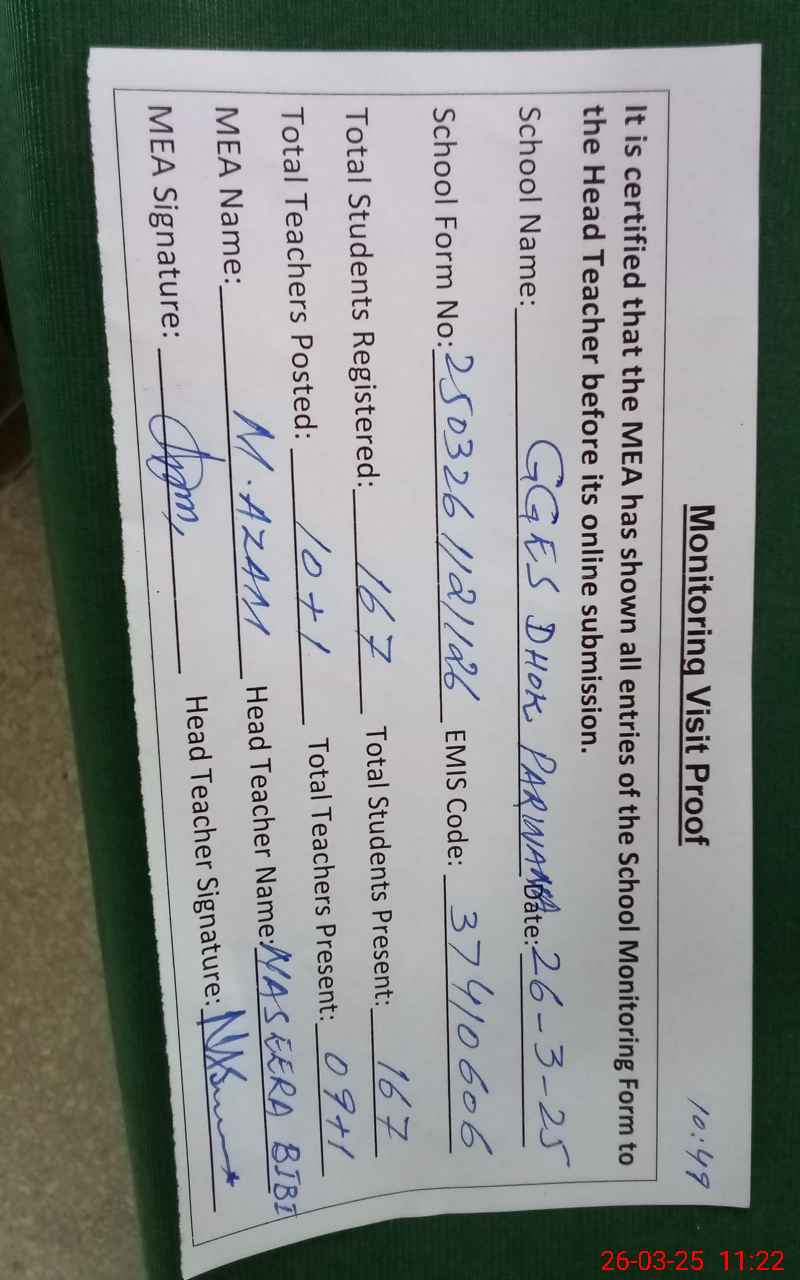 Monitoring Visit Proof
10:49
It is certified that the MEA has shown all entries of the School Monitoring Form to
the Head Teacher before its online submission.
School Name: GGES DHOK PARWANA Date: 26-3-25
School Form No: 2503261121126 EMIS Code: 37410606
Total Students Registered: 167 Total Students Present: 167
Total Teachers Posted: 10+1 Total Teachers Present: 09+1
MEA Name: M. AZAM Head Teacher Name: NASEERA BIBI
MEA Signature: Head Teacher Signature:
26-03-25 11:22